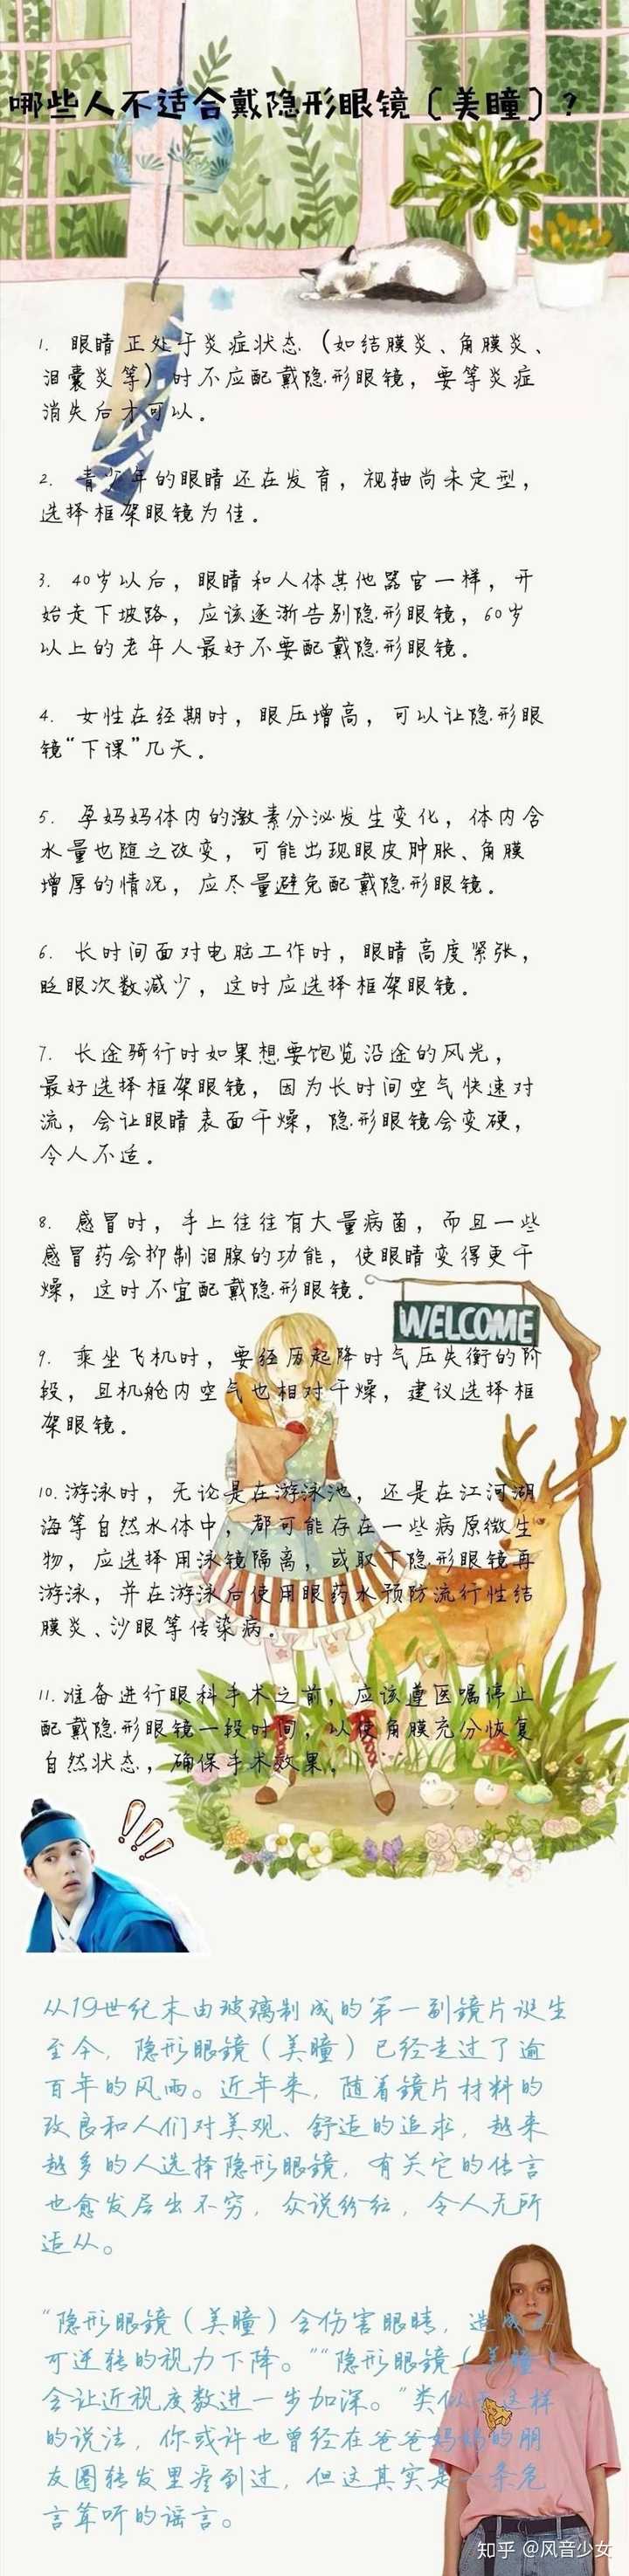 哪些人不适合戴隐形眼镜〔美瞳〕？
1. 眼睛正处于炎症状态（如结膜炎、角膜炎、
泪囊炎等）时不应配戴隐形眼镜，要等炎症
消失后才可以。
2. 青少年的眼睛还在发育，视轴尚未定型，
选择框架眼镜为佳。
3. 40岁以后，眼睛和人体其他器官一样，开
始走下坡路，应该逐渐告别隐形眼镜，60岁
以上的老年人最好不要配戴隐形眼镜。
4. 女性在经期时，眼压增高，可以让隐形眼
镜“下课”几天。
5. 孕妈妈体内的激素分泌发生变化，体内含
水量也随之改变，可能出现眼皮肿胀、角膜
增厚的情况，应尽量避免配戴隐形眼镜。
6. 长时间面对电脑工作时，眼睛高度紧张，
眨眼次数减少，这时应选择框架眼镜。
7. 长途骑行时如果想要饱览沿途的风光，
最好选择框架眼镜，因为长时间空气快速对
流，会让眼睛表面干燥，隐形眼镜会变硬，
令人不适。
8. 感冒时，手上往往有大量病菌，而且一些
感冒药会抑制泪腺的功能，使眼睛变得更干
燥，这时不宜配戴隐形眼镜。
WELCOME
9. 乘坐飞机时，要经历起降时气压失衡的阶
段，且机舱内空气也相对干燥，建议选择框
架眼镜。
10.游泳时，无论是在游泳池，还是在江河湖
海等自然水体中，都可能存在一些病原微生
物，应选择用泳镜隔离，或取下隐形眼镜再
游泳，并在游泳后使用眼药水预防流行性结
膜炎、沙眼等传染病。
11.准备进行眼科手术之前，应该遵医嘱停止
配戴隐形眼镜一段时间，以使角膜充分恢复
自然状态，确保手术效果。
!!!
从19世纪末由玻璃制成的第一副镜片诞生
至今，隐形眼镜（美瞳）已经走过了逾
百年的风雨。近年来，随着镜片材料的
改良和人们对美观、舒适的追求，越来
越多的人选择隐形眼镜，有关它的传言
也愈发层出不穷，众说纷纭，令人无所
适从。
“隐形眼镜（美瞳）会伤害眼睛，造成不
可逆转的视力下降。”“隐形眼镜（美瞳）
会让近视度数进一步加深。”类似于这样
的说法，你或许也曾经在爸爸妈妈的朋
友圈转发里看到过，但这其实是一条危
言耸听的谣言。
知乎 @风音少女